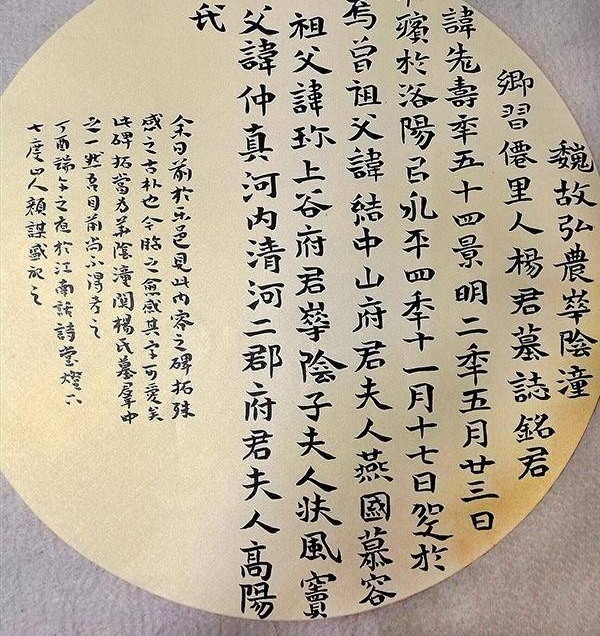 魏故弘農華陰潼
鄉習僊里人楊君墓誌銘君
諱老壽年五十四景明二年五月廿三日
殯於洛陽㠯永平四年十一月十七日窆於
焉曾祖父諱結中山府君夫人燕國慕容
祖父諱珎上谷府君華陰子夫人扶風竇
父諱仲真河内清河二郡府君夫人高陽
氏
余日前於京邑見此内容之碑拓殊
感之古朴也今臨之愈感其字可愛矣
此碑拓當為華陰潼関楊氏墓羣中
之一然吾目前尚不得考之
丁酉端午之夜於江南話詩堂燈下
七度山人顏謀盛記之